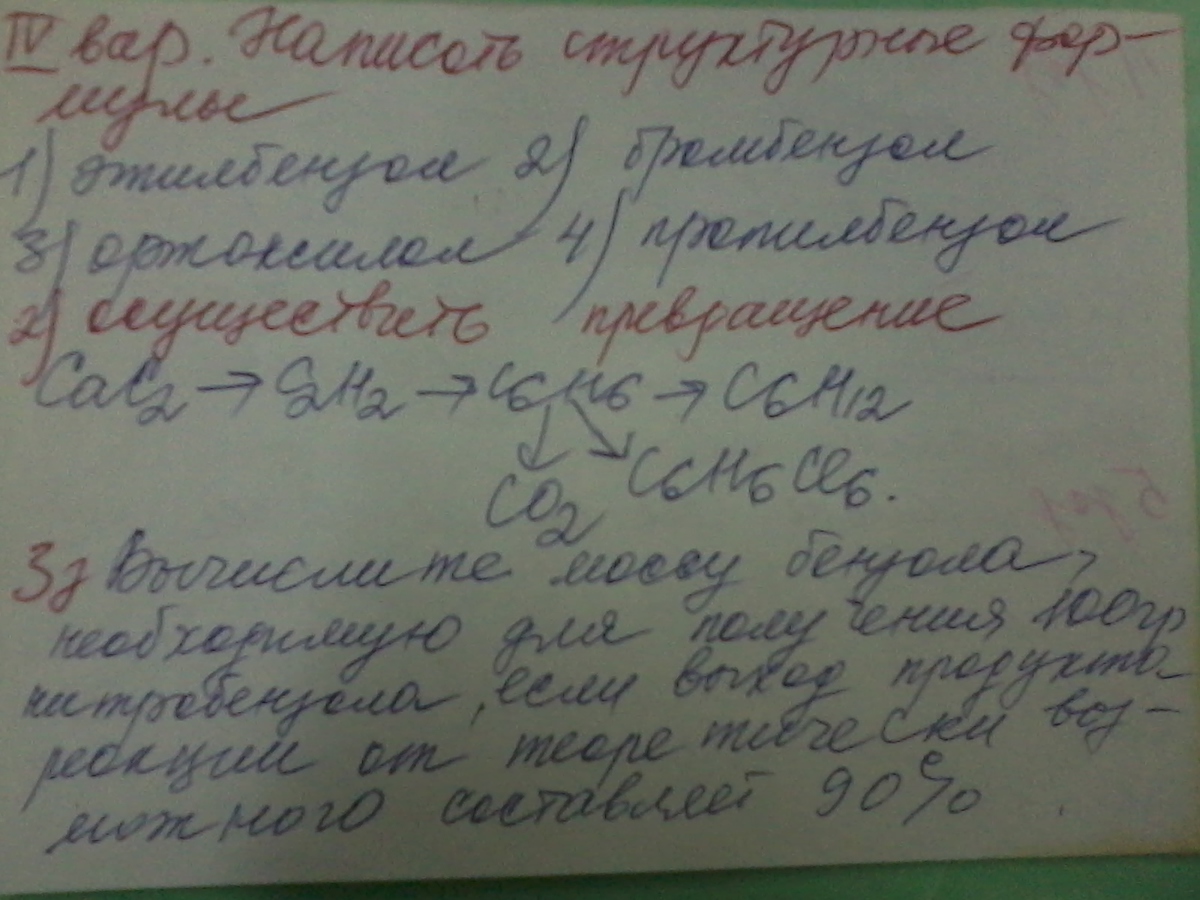 IV вар. Написать структурные фор-
мулы
1) этилбензол 2) бромбензол
3) ортоксилол 4) пропилбензол
2) осуществить превращение
CaC2 → C2H2 → C6H6 → C6H12
↓ ↘
CO2 C6H6Cl6.
3) Вычислите массу бензола,
необходимую для получения 100гр
нитробензола, если выход продукта
реакции от теоретически воз-
можного составляет 90%